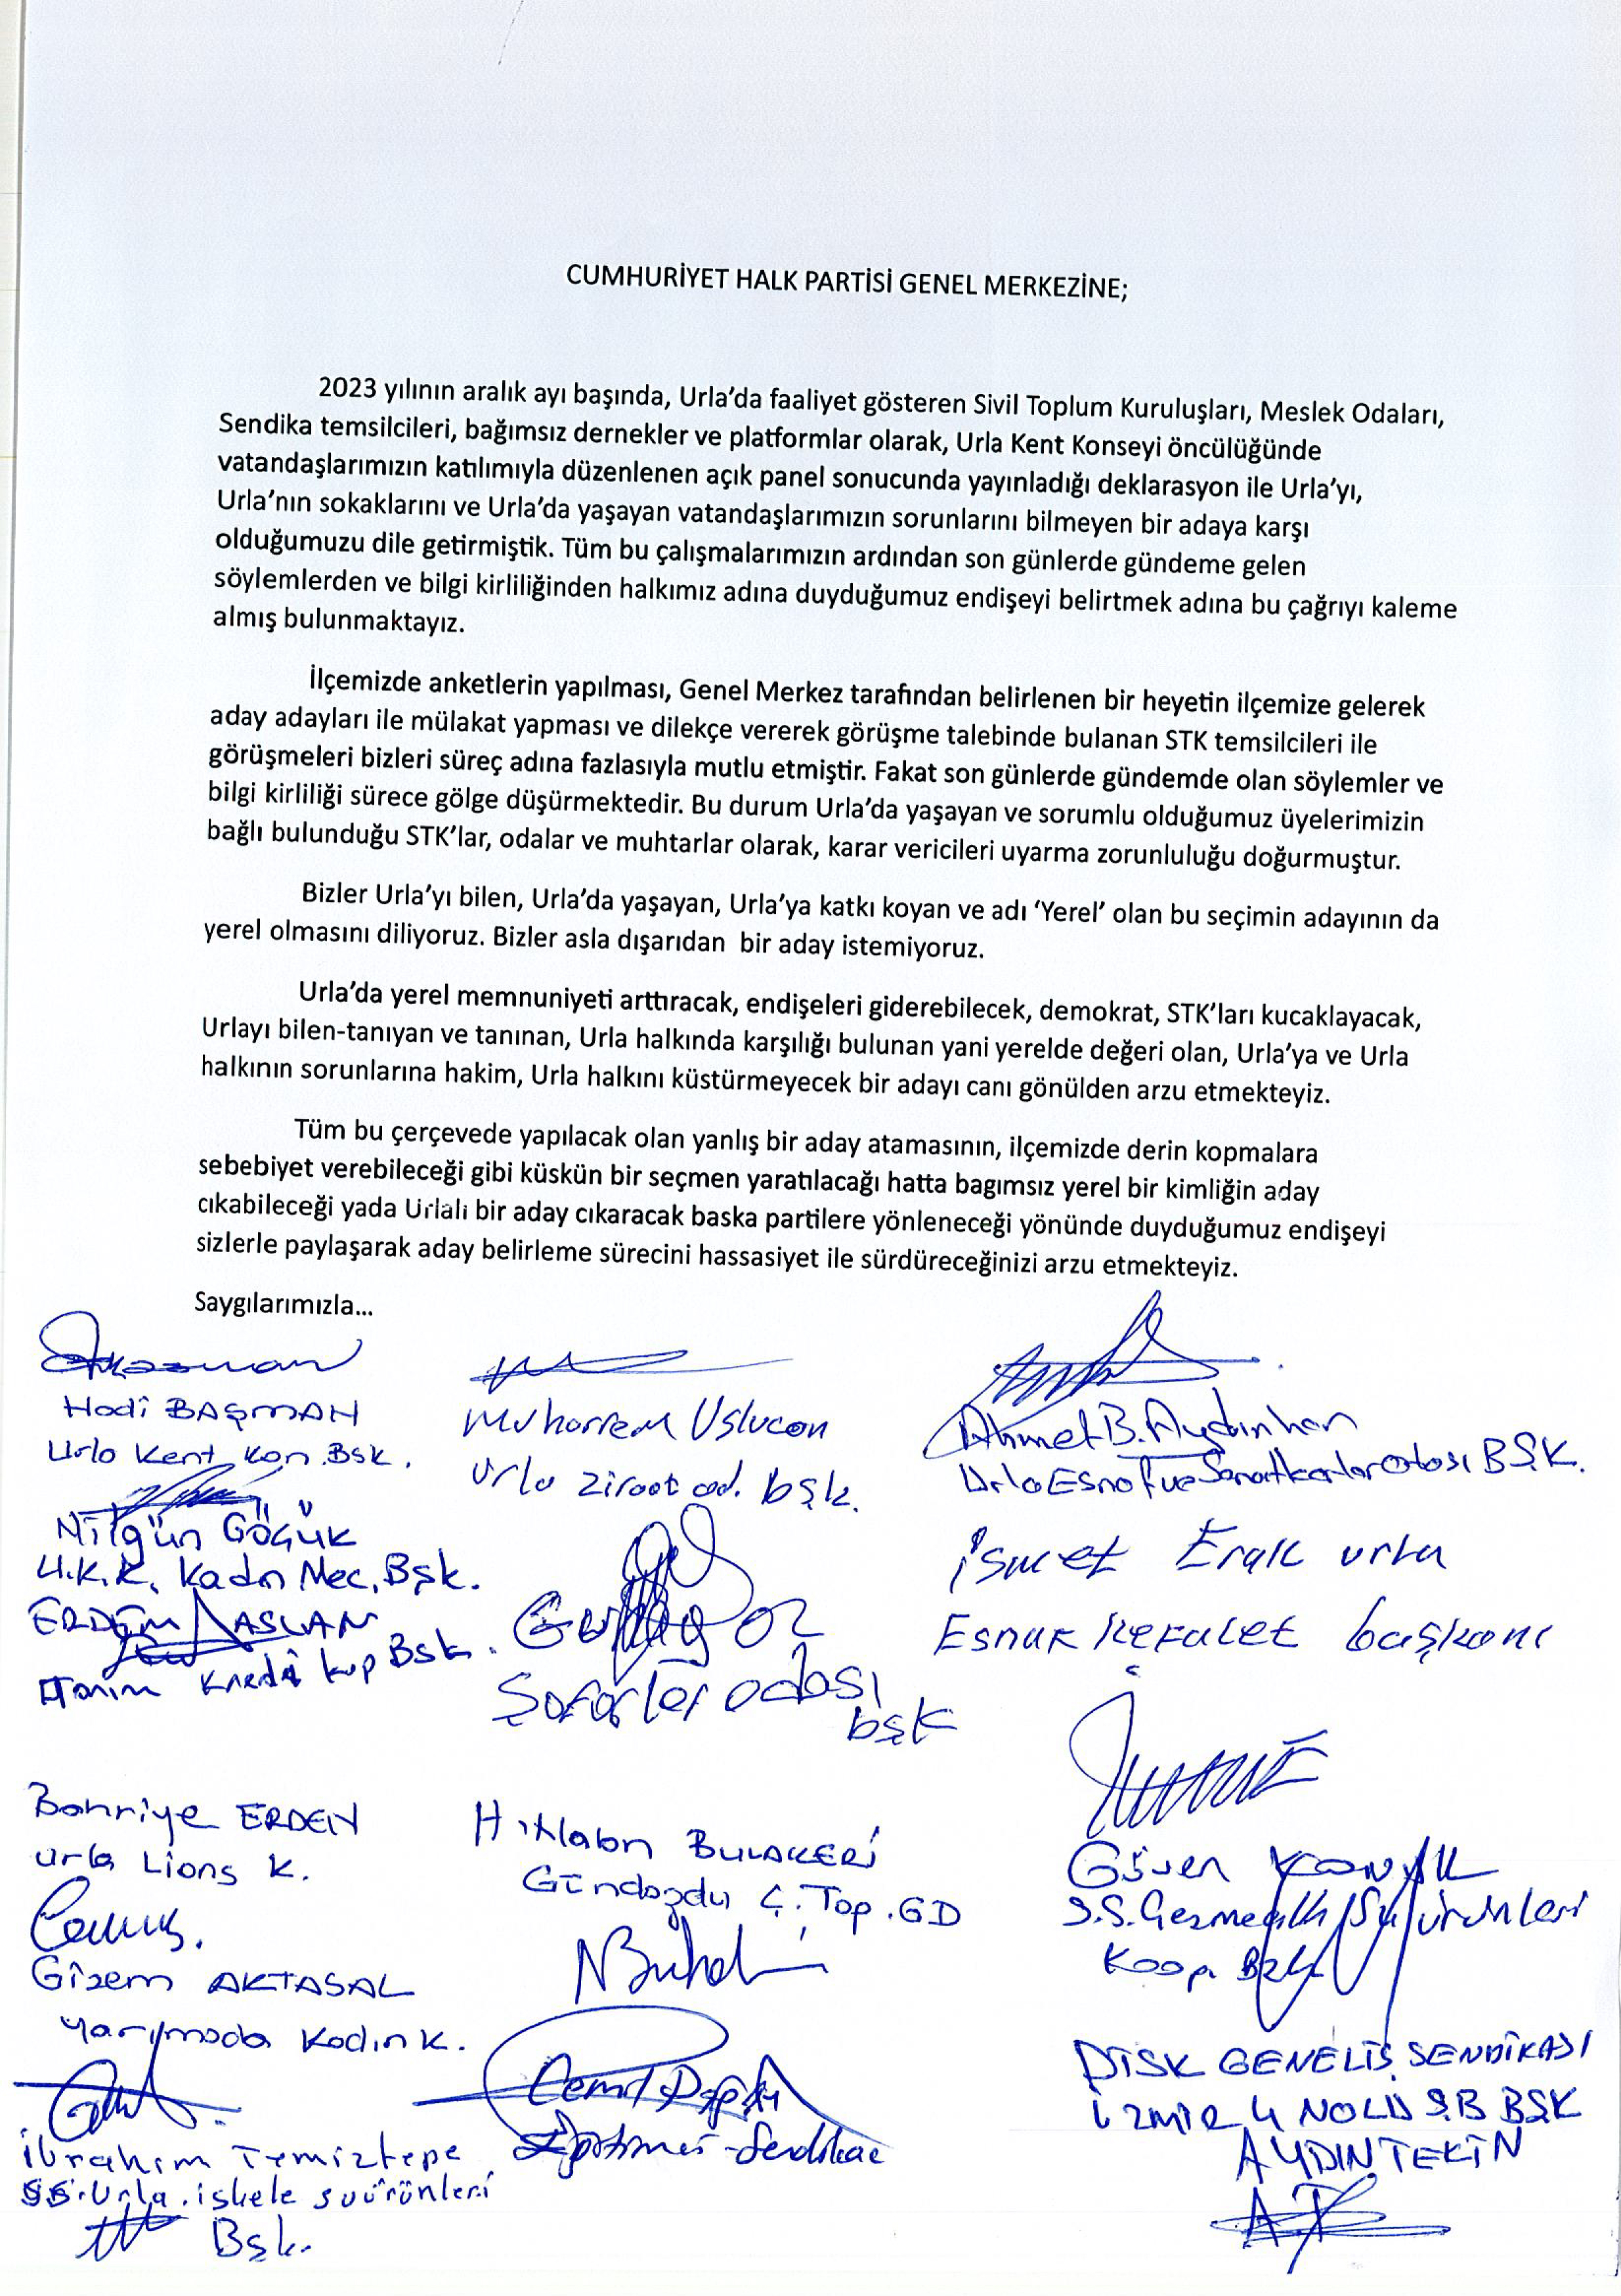 CUMHURİYET HALK PARTİSİ GENEL MERKEZİNE;
2023 yılının aralık ayı başında, Urla’da faaliyet gösteren Sivil Toplum Kuruluşları, Meslek Odaları,
Sendika temsilcileri, bağımsız dernekler ve platformlar olarak, Urla Kent Konseyi öncülüğünde
vatandaşlarımızın katılımıyla düzenlenen açık panel sonucunda yayınladığı deklarasyon ile Urla’yı,
Urla’nın sokaklarını ve Urla’da yaşayan vatandaşlarımızın sorunlarını bilmeyen bir adaya karşı
olduğumuzu dile getirmiştik. Tüm bu çalışmalarımızın ardından son günlerde gündeme gelen
söylemlerden ve bilgi kirliliğinden halkımız adına duyduğumuz endişeyi belirtmek adına bu çağrıyı kaleme
almış bulunmaktayız.
İlçemizde anketlerin yapılması, Genel Merkez tarafından belirlenen bir heyetin ilçemize gelerek
aday adayları ile mülakat yapması ve dilekçe vererek görüşme talebinde bulanan STK temsilcileri ile
görüşmeleri bizleri süreç adına fazlasıyla mutlu etmiştir. Fakat son günlerde gündemde olan söylemler ve
bilgi kirliliği sürece gölge düşürmektedir. Bu durum Urla’da yaşayan ve sorumlu olduğumuz üyelerimizin
bağlı bulunduğu STK’lar, odalar ve muhtarlar olarak, karar vericileri uyarma zorunluluğu doğurmuştur.
Bizler Urla’yı bilen, Urla’da yaşayan, Urla’ya katkı koyan ve adı ‘Yerel’ olan bu seçimin adayının da
yerel olmasını diliyoruz. Bizler asla dışarıdan bir aday istemiyoruz.
Urla’da yerel memnuniyeti arttıracak, endişeleri giderebilecek, demokrat, STK’ları kucaklayacak,
Urlayı bilen-tanıyan ve tanınan, Urla halkında karşılığı bulunan yani yerelde değeri olan, Urla’ya ve Urla
halkının sorunlarına hakim, Urla halkını küstürmeyecek bir adayı canı gönülden arzu etmekteyiz.
Tüm bu çerçevede yapılacak olan yanlış bir aday atamasının, ilçemizde derin kopmalara
sebebiyet verebileceği gibi küskün bir seçmen yaratılacağı hatta bagımsız yerel bir kimliğin aday
cıkabileceği yada Urlalı bir aday cıkaracak baska partilere yönleneceği yönünde duyduğumuz endişeyi
sizlerle paylaşarak aday belirleme sürecini hassasiyet ile sürdüreceğinizi arzu etmekteyiz.
Saygılarımızla...
Hadi BAŞMAN
Urla Kent Kon.Bsk.
Muharrem Uslucan
Urla Ziraat od. bşk.
Ahmet B. Aydınhan
Urla Esnaf ve Sanatkarlar Odası BŞK.
Nilgün GÖÇÜK
U.K.K. Kadın Mec. Bşk.
İsmet Eraik urla
Esnaf Kefalet başkanı
ERDEM ASLAN
Tarım Kredi kop Bsk.
Öz
Şoförler odası
bşk
Bahriye ERDEN
urla Lions K.
BULAKERİ
Gündoğdu Ç. Top. GD
Güven
S.S. Su Ürünleri
Koop.
Gizem AKTASAL
Yarımada Kadın K.
Cemil
DİSK GENELİŞ SENDİKASI
İZMİR 4 NOLU ŞB BŞK
AYDIN TEKİN
İbrahim Temiztepe
SS. Urla. iskele su ürünleri
Bşk.